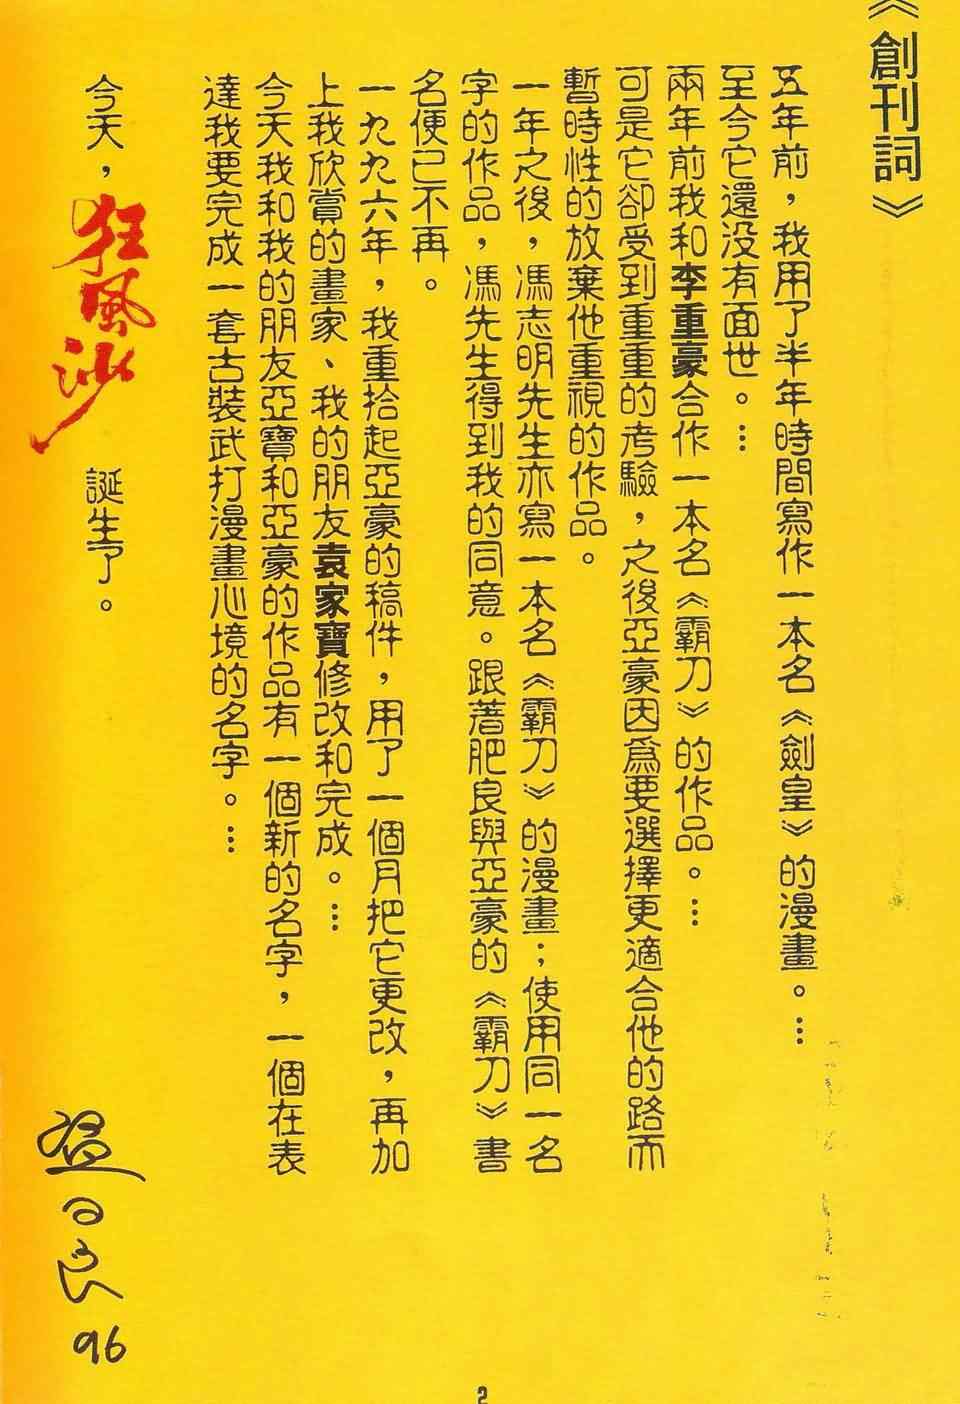 《創刊詞》
五年前，我用了半年時間寫作一本名《劍皇》的漫畫。…
至今它還没有面世。…
兩年前我和李重豪合作一本名《霸刀》的作品。…
可是它卻受到重重的考驗，之後亞豪因為要選擇更適合他的路而
暫時性的放棄他重視的作品。
一年之後，馮志明先生亦寫一本名《霸刀》的漫畫；使用同一名
字的作品，馮先生得到我的同意。跟著肥良與亞豪的《霸刀》書
名便已不再。
一九九六年，我重拾起亞豪的稿件，用了一個月把它更改，再加
上我欣賞的畫家、我的朋友袁家寶修改和完成。…
今天我和我的朋友亞寶和亞豪的作品有一個新的名字，一個在表
達我要完成一套古裝武打漫畫心境的名字。…
今天，狂風沙 誕生了。
溫日良
96
2